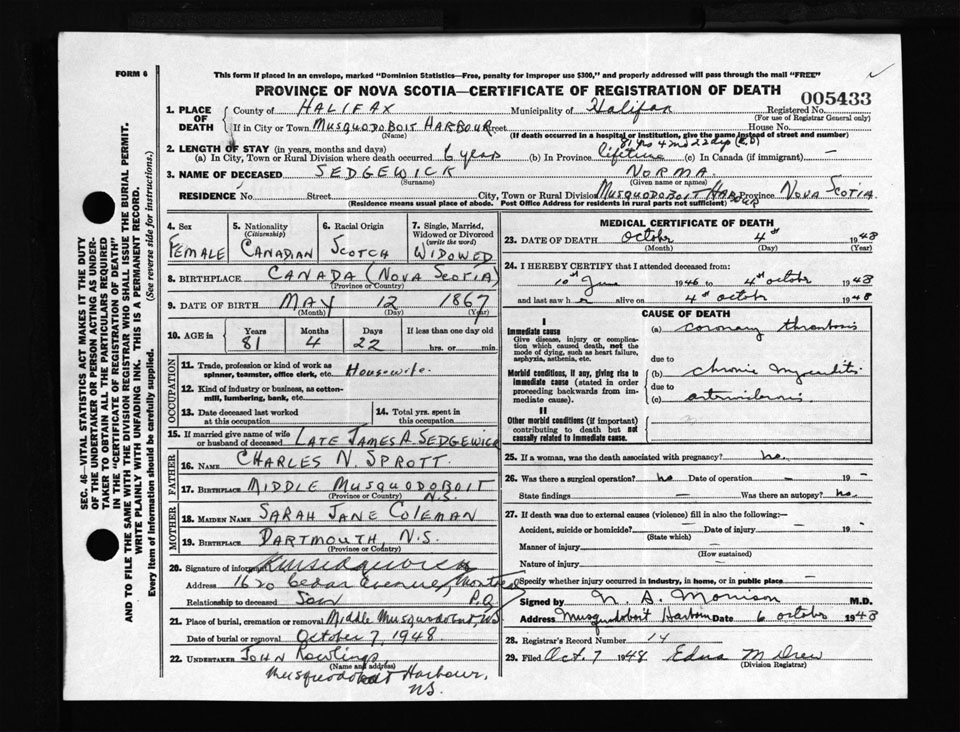 FORM 6
This form if placed in an envelope, marked "Dominion Statistics—Free, penalty for improper use $300," and properly addressed will pass through the mail "FREE"
PROVINCE OF NOVA SCOTIA—CERTIFICATE OF REGISTRATION OF DEATH
005433
SEC. 46—VITAL STATISTICS ACT MAKES IT THE DUTY OF THE UNDERTAKER OR PERSON ACTING AS UNDERTAKER TO OBTAIN ALL THE PARTICULARS REQUIRED IN THE "CERTIFICATE OF REGISTRATION OF DEATH" AND TO FILE THE SAME WITH THE DIVISION REGISTRAR WHO SHALL ISSUE THE BURIAL PERMIT.
WRITE PLAINLY WITH UNFADING INK. THIS IS A PERMANENT RECORD.
Every item of Information should be carefully supplied. (See reverse side for instructions.)
1. PLACE OF DEATH County of HALIFAX Municipality of Halifax Registered No.
(For use of Registrar General only)
If in City or Town MUSQUODOBOIT HARBOUR Street House No.
(Name) (If death occurred in a hospital or institution, give the name instead of street and number)
2. LENGTH OF STAY (in years, months and days) 81 yrs 4 mo 22 dys
(a) In City, Town or Rural Division where death occurred 6 years (b) In Province lifetime (c) In Canada (if immigrant) —
3. NAME OF DECEASED SEDGEWICK NORMA
(Surname) (Given name or names)
RESIDENCE No. Street City, Town or Rural Division MUSQUODOBOIT HARBOUR Province NOVA SCOTIA
(Residence means usual place of abode. Post Office Address for residents in rural parts not sufficient)
4. Sex FEMALE
5. Nationality (Citizenship) CANADIAN
6. Racial Origin SCOTCH
7. Single, Married, Widowed or Divorced (write the word) WIDOWED
8. BIRTHPLACE CANADA (NOVA SCOTIA)
(Province or Country)
9. DATE OF BIRTH MAY 12 1867
(Month) (Day) (Year)
10. AGE in Years 81 Months 4 Days 22 If less than one day old hrs. or min.
OCCUPATION
11. Trade, profession or kind of work as spinner, teamster, office clerk, etc. Housewife.
12. Kind of industry or business, as cotton-mill, lumbering, bank, etc.
13. Date deceased last worked at this occupation
14. Total yrs. spent in this occupation
15. If married give name of wife or husband of deceased LATE JAMES A. SEDGEWICK
FATHER
16. NAME CHARLES N. SPROTT.
17. BIRTHPLACE MIDDLE MUSQUODOBOIT N.S.
(Province or Country)
MOTHER
18. MAIDEN NAME SARAH JANE COLEMAN
19. BIRTHPLACE DARTMOUTH, N.S.
(Province or Country)
20. Signature of informant
Address 1620 Cedar Avenue, Montreal P.Q.
Relationship to deceased Son
21. Place of burial, cremation or removal Middle Musquodoboit NS
Date of burial or removal October 7, 1948.
22. UNDERTAKER JOHN Rowlings
(Name and address)
Musquodoboit Harbour, NS.
MEDICAL CERTIFICATE OF DEATH
23. DATE OF DEATH October 4th 1948
(Month) (Day) (Year)
24. I HEREBY CERTIFY that I attended deceased from:
10th June 1946 to 4th october 1948
and last saw her alive on 4th octobr 1948
CAUSE OF DEATH
I
Immediate cause
Give disease, injury or complication which caused death, not the mode of dying, such as heart failure, asphyxia, asthenia, etc.
(a) coronary thrombosis
due to
Morbid conditions, if any, giving rise to immediate cause (stated in order proceeding backwards from immediate cause).
(b) chronic myocarditis
due to
(c) arteriosclerosis
II
Other morbid conditions (if important) contributing to death but not causally related to immediate cause.
25. If a woman, was the death associated with pregnancy? no.
26. Was there a surgical operation? no Date of operation — 19 —
State findings — Was there an autopsy? no.
27. If death was due to external causes (violence) fill in also the following:—
Accident, suicide or homicide? — Date of injury — 19 —
(State which)
Manner of injury —
(How sustained)
Nature of injury —
Specify whether injury occurred in industry, in home, or in public place —
Signed by N. A. Morrison M.D.
Address Musquodoboit Harbour Date 6 october 1948
28. Registrar's Record Number 14
29. Filed Oct. 7 1948 Edna M Drew
(Division Registrar)